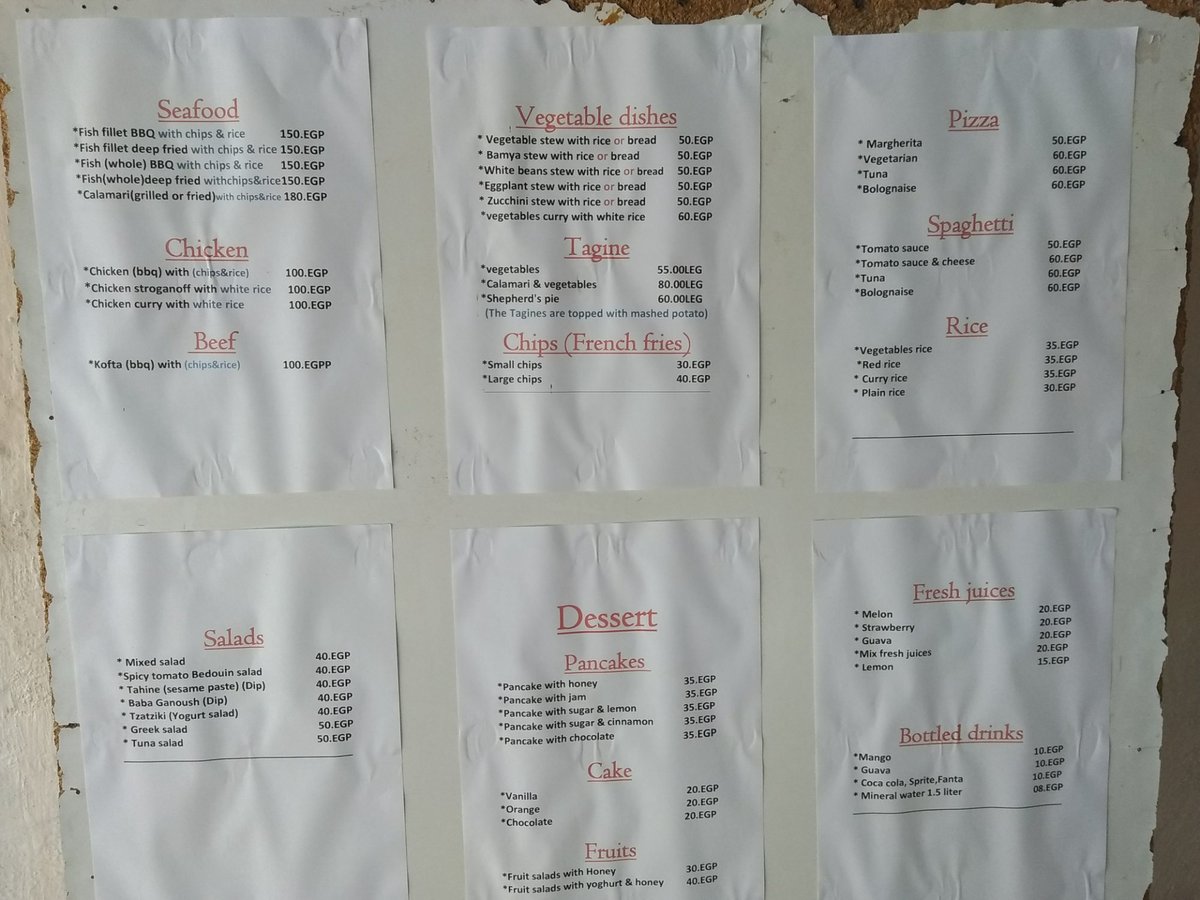 Seafood
*Fish fillet BBQ with chips & rice 150.EGP
*Fish fillet deep fried with chips & rice 150.EGP
*Fish (whole) BBQ with chips & rice 150.EGP
*Fish(whole)deep fried withchips&rice150.EGP
*Calamari(grilled or fried)with chips&rice 180.EGP
Chicken
*Chicken (bbq) with (chips&rice) 100.EGP
*Chicken stroganoff with white rice 100.EGP
*Chicken curry with white rice 100.EGP
Beef
*Kofta (bbq) with (chips&rice) 100.EGPP
Vegetable dishes
* Vegetable stew with rice or bread 50.EGP
* Bamya stew with rice or bread 50.EGP
*White beans stew with rice or bread 50.EGP
*Eggplant stew with rice or bread 50.EGP
* Zucchini stew with rice or bread 50.EGP
*vegetables curry with white rice 60.EGP
Tagine
*vegetables 55.00LEG
*Calamari & vegetables 80.00LEG
*Shepherd's pie 60.00LEG
(The Tagines are topped with mashed potato)
Chips (French fries)
*Small chips 30.EGP
*Large chips 40.EGP
Pizza
* Margherita 50.EGP
*Vegetarian 60.EGP
*Tuna 60.EGP
*Bolognaise 60.EGP
Spaghetti
*Tomato sauce 50.EGP
*Tomato sauce & cheese 60.EGP
*Tuna 60.EGP
*Bolognaise 60.EGP
Rice
*Vegetables rice 35.EGP
*Red rice 35.EGP
* Curry rice 35.EGP
* Plain rice 30.EGP
Salads
* Mixed salad 40.EGP
*Spicy tomato Bedouin salad 40.EGP
* Tahine (sesame paste) (Dip) 40.EGP
* Baba Ganoush (Dip) 40.EGP
* Tzatziki (Yogurt salad) 40.EGP
* Greek salad 50.EGP
* Tuna salad 50.EGP
Dessert
Pancakes
*Pancake with honey 35.EGP
*Pancake with jam 35.EGP
*Pancake with sugar & lemon 35.EGP
*Pancake with sugar & cinnamon 35.EGP
*Pancake with chocolate 35.EGP
Cake
*Vanilla 20.EGP
*Orange 20.EGP
*Chocolate 20.EGP
Fruits
*Fruit salads with Honey 30.EGP
*Fruit salads with yoghurt & honey 40.EGP
Fresh juices
* Melon 20.EGP
* Strawberry 20.EGP
* Guava 20.EGP
*Mix fresh juices 20.EGP
* Lemon 15.EGP
Bottled drinks
*Mango 10.EGP
* Guava 10.EGP
* Coca cola, Sprite,Fanta 10.EGP
* Mineral water 1.5 liter 08.EGP